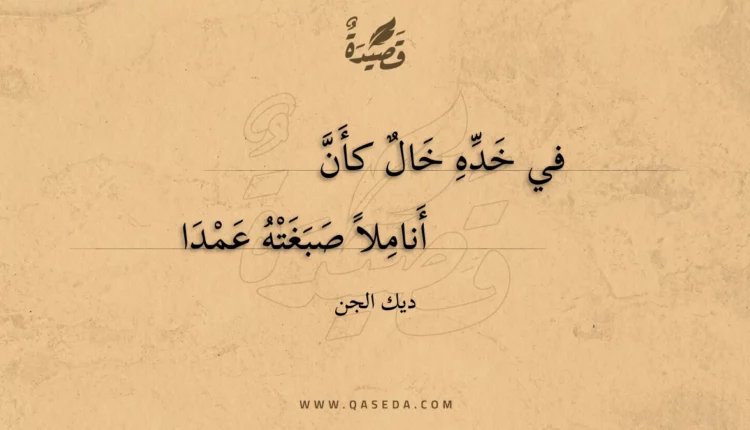 قَصِيْدَةٌ
في خَدِّهِ خَالٌ كأَنَّ
أَنامِلاً صَبَغَتْهُ عَمْدَا
ديك الجن
WWW.QASEDA.COM